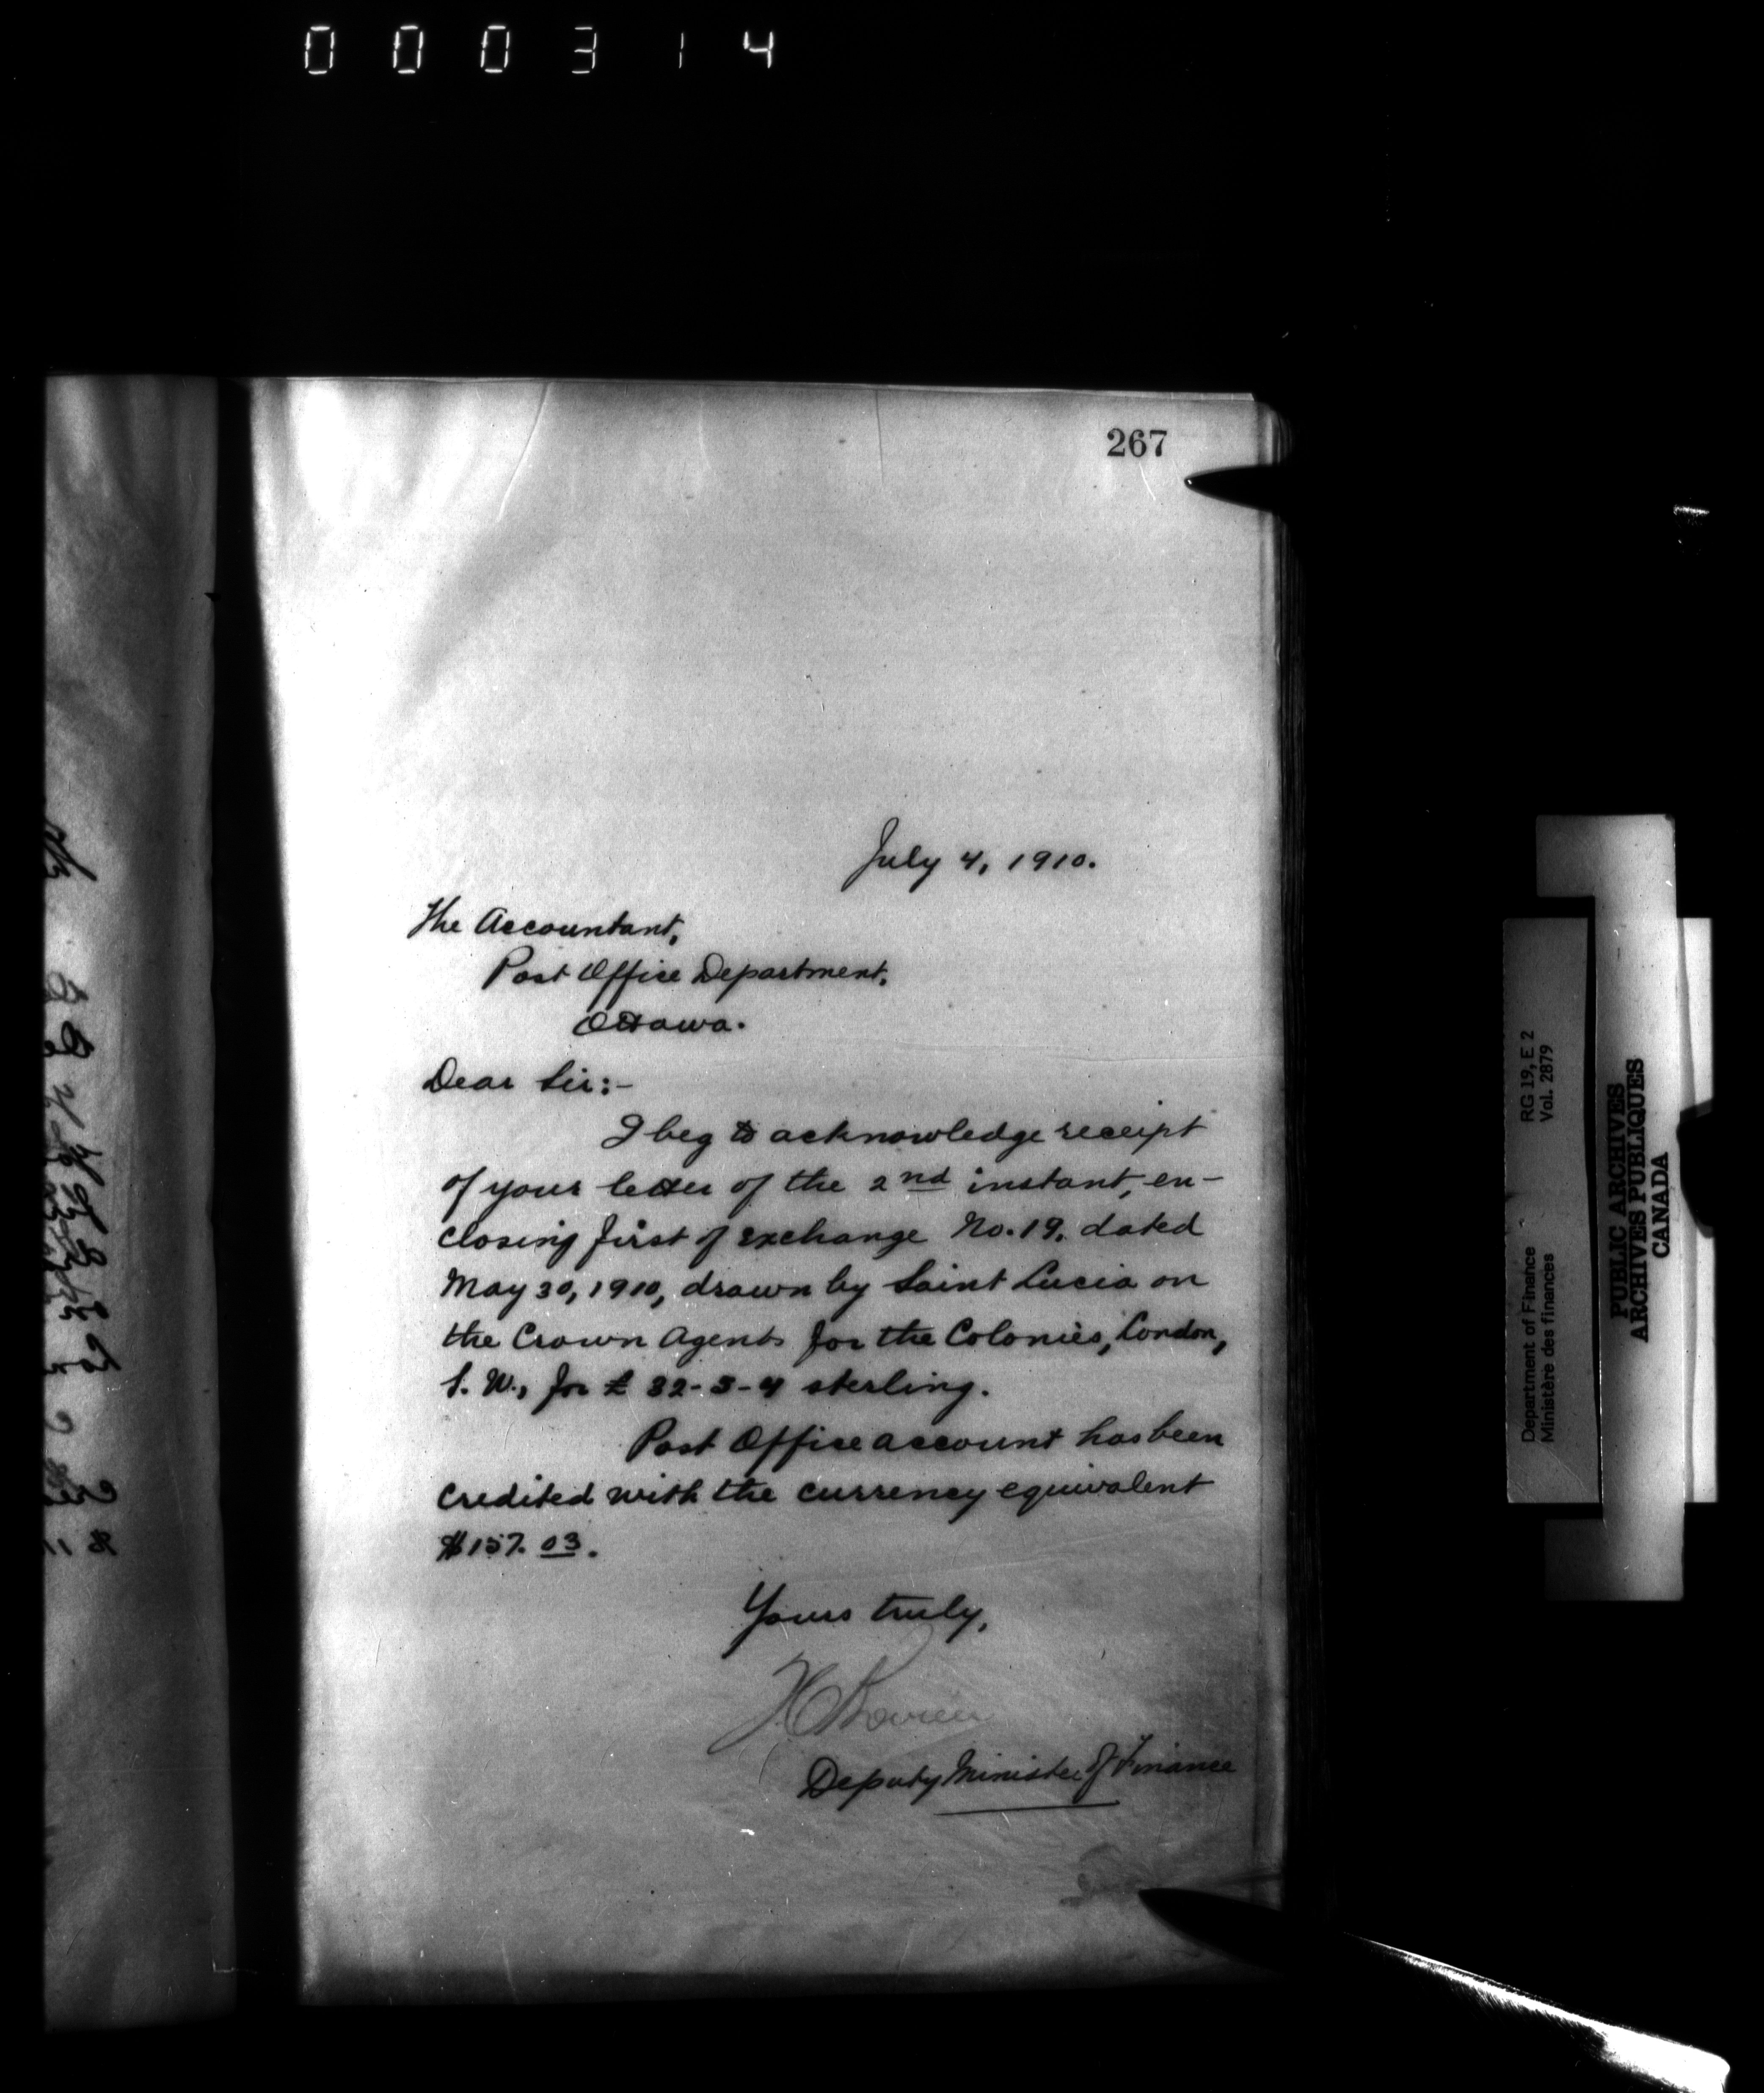 000314
267
July 4, 1910.
The Accountant,
Post Office Department,
Ottawa.
Dear Sir:-
I beg to acknowledge receipt
of your letter of the 2nd instant, en-
closing first of exchange No. 19, dated
May 30, 1910, drawn by Saint Lucia on
the Crown Agents for the Colonies, London,
S. W., for £ 32-5-4 sterling.
Post Office account has been
credited with the currency equivalent
$157.03.
Yours truly,
T C Boville
Deputy Minister of Finance
Department of Finance RG 19, E 2
Ministère des finances Vol. 2879
PUBLIC ARCHIVES
ARCHIVES PUBLIQUES
CANADA